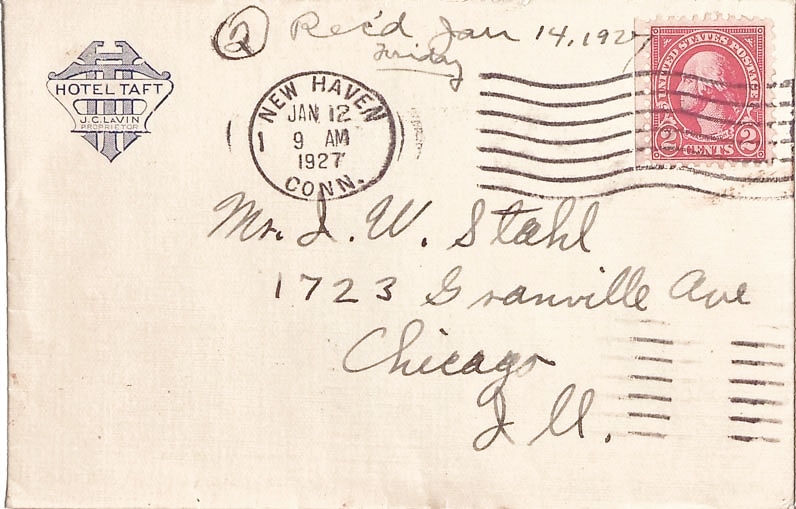 ② Rec'd Jan 14, 1927
Friday
HOTEL TAFT
J.C. LAVIN
PROPRIETOR
NEW HAVEN
JAN 12
1 9 AM
1927
CONN.
UNITED STATES POSTAGE
2 CENTS 2
Mr. I. W. Stahl
1723 Granville Ave
Chicago
Ill.